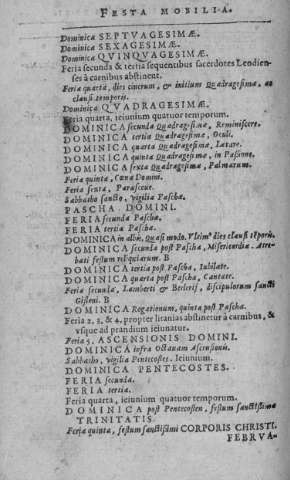 FESTA MOBILIA.
Dominica SEPTVAGESIMÆ.
Dominica SEXAGESIMÆ.
Dominica QVINQVAGESIMÆ.
Feria secunda & tertia sequentibus sacerdotes Leodien-
ses à carnibus abstinent.
Feria quarta, dies cinerum, & initium Quadragesimæ, ac
clausi temporis.
Dominica QVADRAGESIMÆ.
Feria quarta, ieiunium quatuor temporum.
DOMINICA secunda Quadragesimæ, Reminiscere.
DOMINICA tertia Quadragesimæ, Oculi.
DOMINICA quarta Quadragesimæ, Lætare.
DOMINICA quinta Quadragesimæ, in Passione.
DOMINICA sexta Quadragesimæ, Palmarum.
Feria quinta, Cœna Domini.
Feria sexta, Parasceue.
Sabbatho sancto, vigilia Paschæ.
PASCHA DOMINI.
FERIA secunda Paschæ.
FERIA tertia Paschæ.
DOMINICA in albis, Quasi modo. Vltim' dies clausi tẽporis.
DOMINICA secunda post Pascha, Misericordia. Atre-
bati festum reliquiarum. B
DOMINICA tertia post Pascha, Iubilate.
DOMINICA quarta post Pascha, Cantate.
Feria secunda, Lamberti & Berlerij, discipulorum sancti
Gisleni. B
DOMINICA Rogationum, quinta post Pascha.
Feria 2, 3, & 4, propter litanias abstinetur à carnibus, &
vsque ad prandium ieiunatur.
Feria 5. ASCENSIONIS DOMINI.
DOMINICA infra Octauam Ascensionis.
Sabbatho, vigilia Pentecostes. Ieiunium.
DOMINICA PENTECOSTES.
FERIA secunda.
FERIA tertia.
Feria quarta, ieiunium quatuor temporum.
DOMINICA post Pentecosten, festum sanctissimæ
TRINITATIS.
Feria quinta, festum sanctissimi CORPORIS CHRISTI.
FEBRVA-